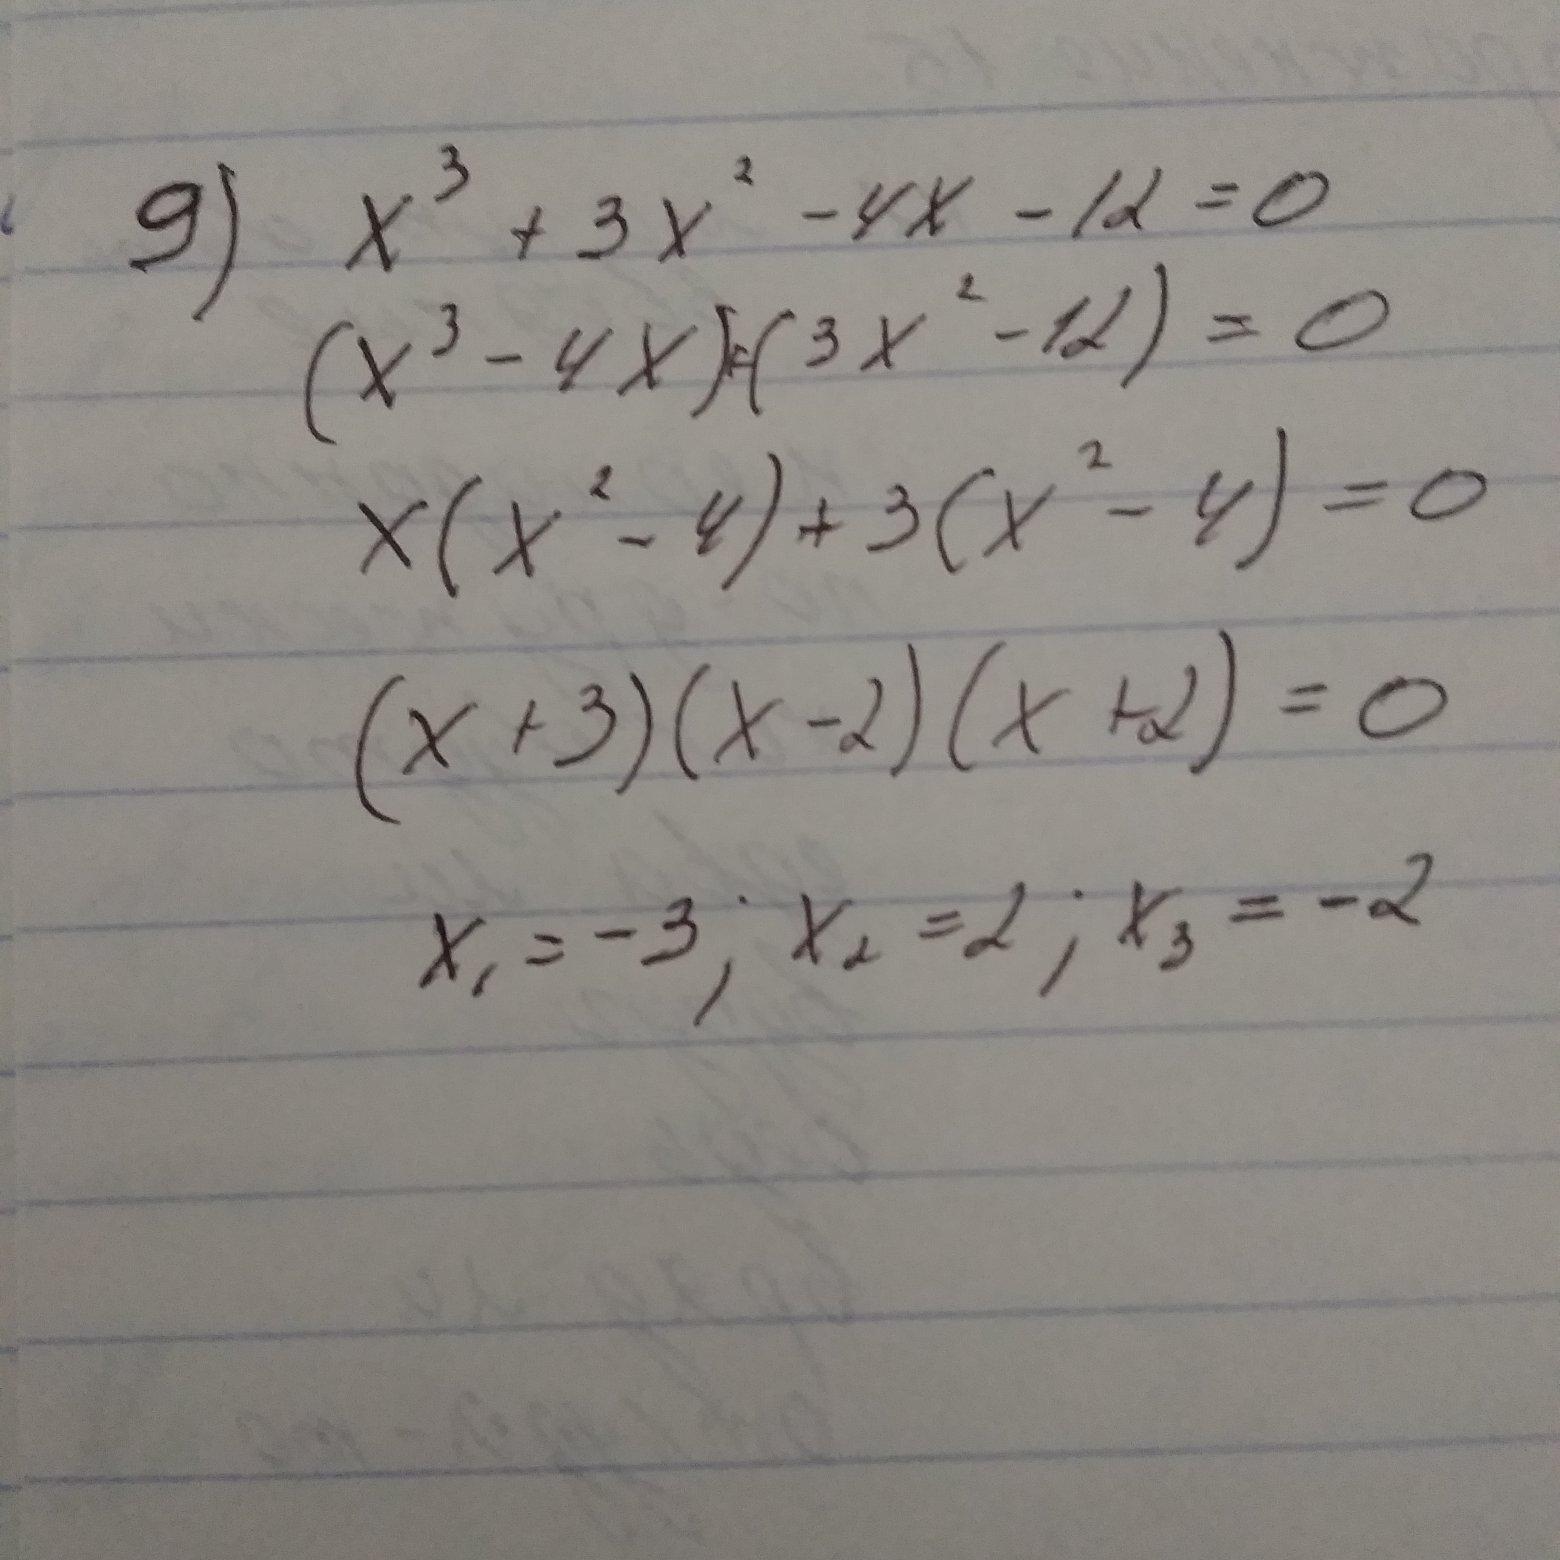 9) x³ + 3x² - 4x - 12 = 0
(x³ - 4x) + (3x² - 12) = 0
x(x² - 4) + 3(x² - 4) = 0
(x + 3)(x - 2)(x + 2) = 0
x₁ = -3; x₂ = 2; x₃ = -2